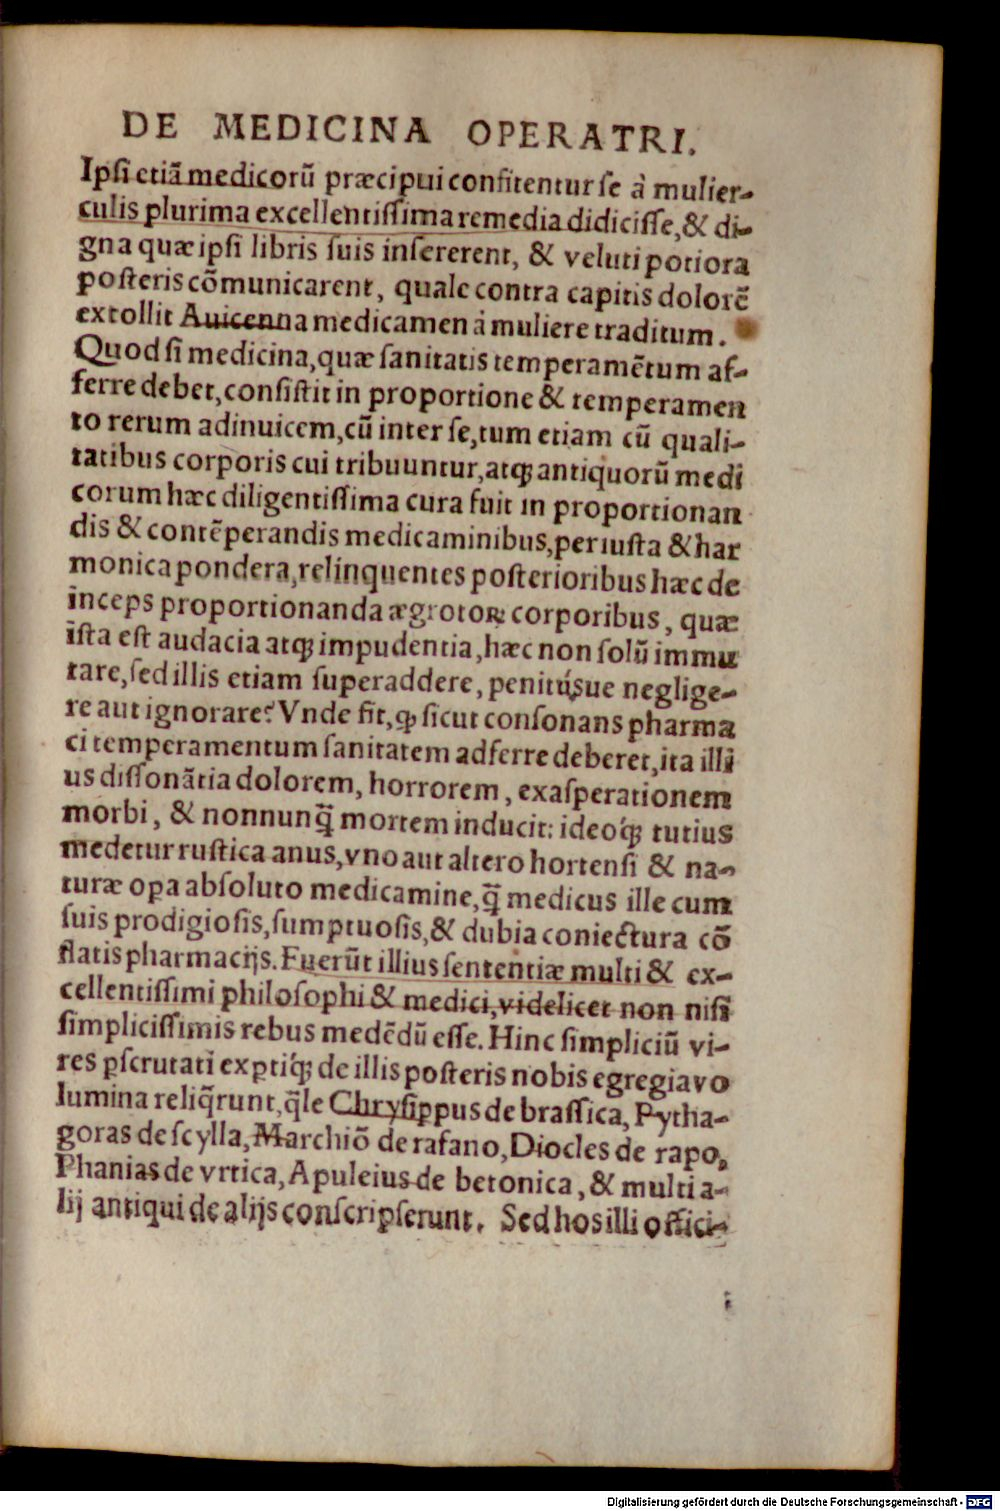 DE MEDICINA OPERATRI.
Ipsi etiã medicorũ præcipui confitentur se à mulier-
culis plurima excellentissima remedia didicisse, & di-
gna quæ ipsi libris suis insererent, & veluti potiora
posteris cõmunicarent, quale contra capitis dolorẽ
extollit Auicenna medicamen à muliere traditum.
Quod si medicina, quæ sanitatis temperamẽtum af-
ferre debet, consistit in proportione & temperamen
to rerum adinuicem, cũ inter se, tum etiam cũ quali-
tatibus corporis cui tribuuntur, atq; antiquorũ medi
corum hæc diligentissima cura fuit in proportionan
dis & contẽperandis medicaminibus, per iusta & har
monica pondera, relinquentes posterioribus hæc de
inceps proportionanda ægrotoꝝ corporibus, quæ
ista est audacia atq; impudentia, hæc non solũ immu
tare, sed illis etiam superaddere, penitúsue neglige-
re aut ignorare? Vnde fit, ꝙ sicut consonans pharma
ci temperamentum sanitatem adferre deberet, ita illi
us dissonãtia dolorem, horrorem, exasperationem
morbi, & nonnunq̃ mortem inducit: ideoq́; tutius
medetur rustica anus, vno aut altero hortensi & na-
turæ oꝑa absoluto medicamine, q̃ medicus ille cum
suis prodigiosis, sumptuosis, & dubia coniectura cõ
flatis pharmacijs. Fuerũt illius sententiæ multi & ex-
cellentissimi philosophi & medici, videlicet non nisi
simplicissimis rebus medẽdũ esse. Hinc simpliciũ vi-
res ꝑscrutati exꝑtiq́; de illis posteris nobis egregia vo
lumina reliq̃runt, q̃le Chrysippus de brassica, Pytha-
goras de scylla, Marchiõ de rafano, Diocles de rapo,
Phanias de vrtica, Apuleius de betonica, & multi a-
lij antiqui de alijs conscripserunt. Sed hos illi offici-
Digitalisierung gefördert durch die Deutsche Forschungsgemeinschaft - DFG